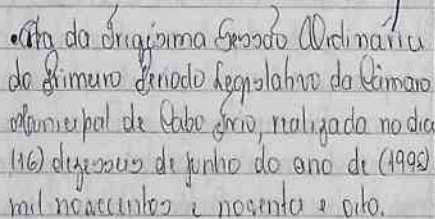 .Ata da Trigésima Sessão Ordinária
do Primeiro Período Legislativo da Câmara
Municipal de Cabo Frio, realizada no dia
(16) dezesseis de junho do ano de (1998)
mil novecentos e noventa e oito.